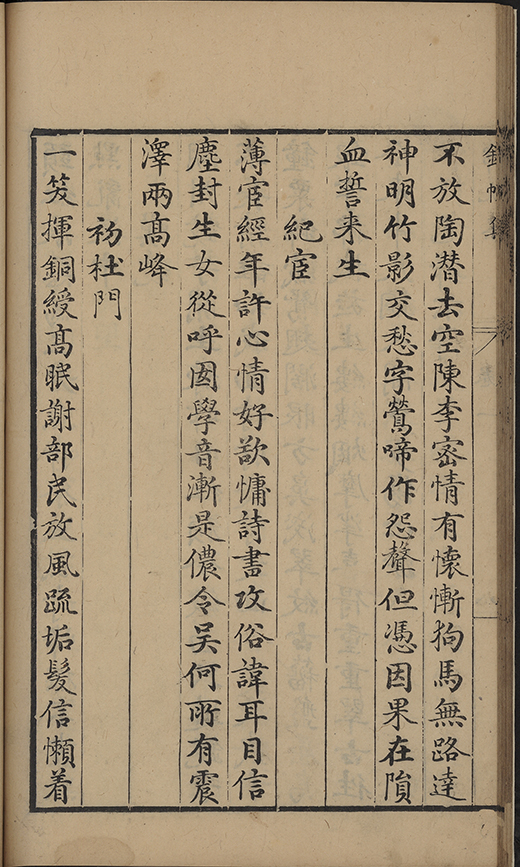 錦帆集
不放陶潛去空陳李密情有懷慚狗馬無路達
神明竹影交愁字鶯啼作怨聲但憑因果在隕
血誓来生
紀宦
薄宦經年許心情好欲慵詩書攻俗諱耳目信
塵封生女從呼囡學音漸是儂令吳何所有震
澤兩髙峰
初杜門
一笑揮銅綬髙眠謝部民放風疏垢髮信懶着